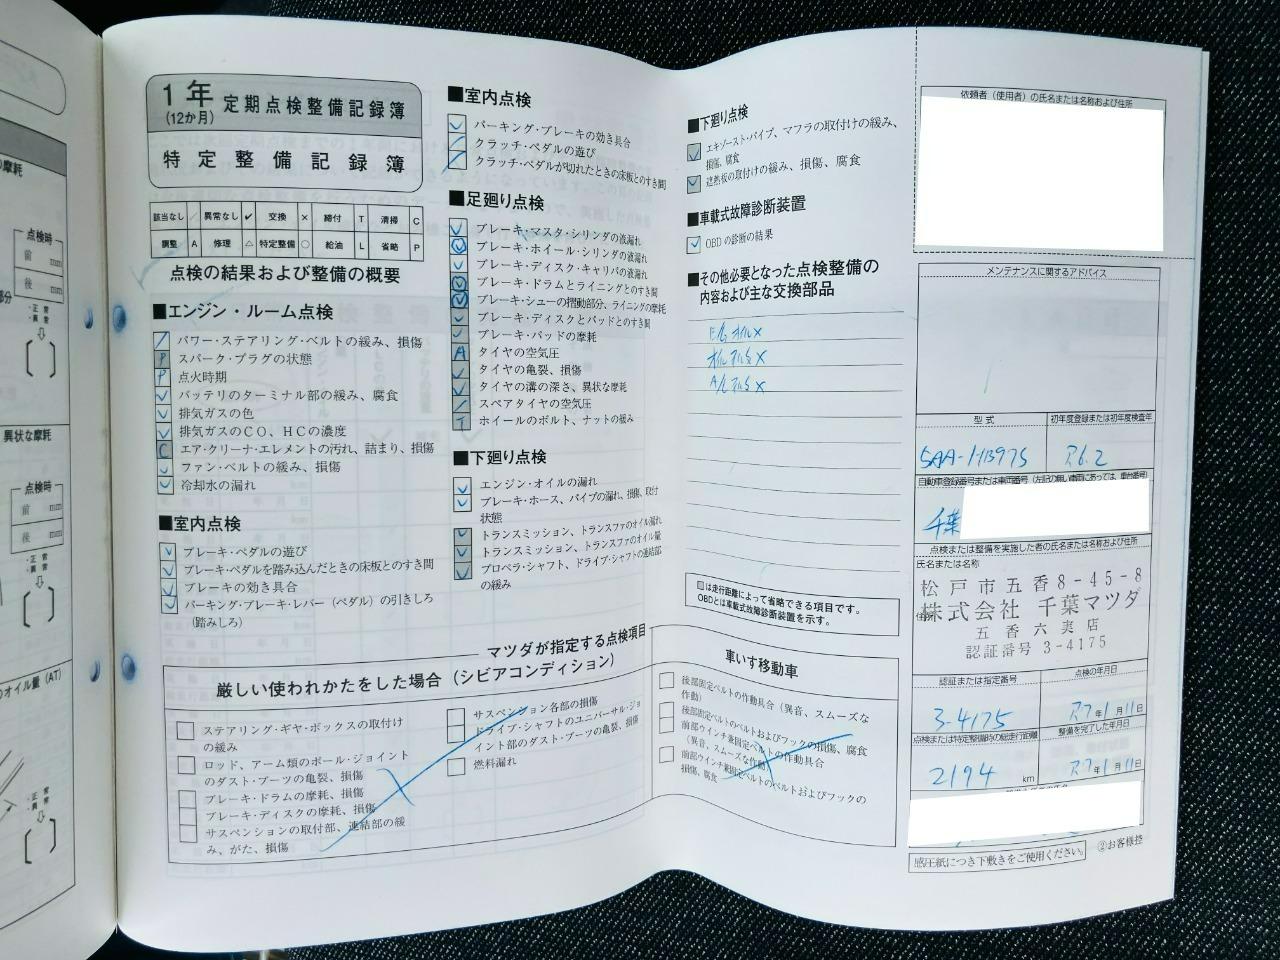 摩耗
点検時
前 mm
後 mm
・正常
・異常
異状な摩耗
点検時
前 mm
後 mm
・正常
・異常
オイル量(AT)
・正常
・異常
1年
(12か月)
定期点検整備記録簿
特定整備記録簿
該当なし / 異常なし ✓ 交換 × 締付 T 清掃 C
調整 A 修理 △ 特定整備 ○ 給油 L 省略 P
点検の結果および整備の概要
■エンジン・ルーム点検
/ パワー・ステアリング・ベルトの緩み、損傷
P スパーク・プラグの状態
P 点火時期
✓ バッテリのターミナル部の緩み、腐食
✓ 排気ガスの色
✓ 排気ガスのCO、HCの濃度
C エア・クリーナ・エレメントの汚れ、詰まり、損傷
✓ ファン・ベルトの緩み、損傷
✓ 冷却水の漏れ
■室内点検
✓ ブレーキ・ペダルの遊び
✓ ブレーキ・ペダルを踏み込んだときの床板とのすき間
✓ ブレーキの効き具合
✓ パーキング・ブレーキ・レバー(ペダル)の引きしろ
(踏みしろ)
■室内点検
✓ パーキング・ブレーキの効き具合
/ クラッチ・ペダルの遊び
/ クラッチ・ペダルが切れたときの床板とのすき間
■足廻り点検
✓ ブレーキ・マスタ・シリンダの液漏れ
✓ ブレーキ・ホイール・シリンダの液漏れ
✓ ブレーキ・ディスク・キャリパの液漏れ
✓ ブレーキ・ドラムとライニングとのすき間
✓ ブレーキ・シューの摺動部分、ライニングの摩耗
✓ ブレーキ・ディスクとパッドとのすき間
✓ ブレーキ・パッドの摩耗
A タイヤの空気圧
✓ タイヤの亀裂、損傷
✓ タイヤの溝の深さ、異状な摩耗
/ スペアタイヤの空気圧
T ホイールのボルト、ナットの緩み
■下廻り点検
✓ エンジン・オイルの漏れ
✓ ブレーキ・ホース、パイプの漏れ、損傷、取付
状態
✓ トランスミッション、トランスファのオイル漏れ
✓ トランスミッション、トランスファのオイル量
✓ プロペラ・シャフト、ドライブ・シャフトの連結部
の緩み
■下廻り点検
✓ エキゾースト・パイプ、マフラの取付けの緩み、
損傷、腐食
✓ 遮熱板の取付けの緩み、損傷、腐食
■車載式故障診断装置
✓ OBDの診断の結果
■その他必要となった点検整備の
内容および主な交換部品
E/G オイル×
オイルフィルタ×
□は走行距離によって省略できる項目です。
OBDとは車載式故障診断装置を示す。
マツダが指定する点検項目
厳しい使われかたをした場合(シビアコンディション)
ステアリング・ギヤ・ボックスの取付け
の緩み
ロッド、アーム類のボール・ジョイント
のダスト・ブーツの亀裂、損傷
ブレーキ・ドラムの摩耗、損傷
ブレーキ・ディスクの摩耗、損傷
サスペンションの取付部、連結部の緩
み、がた、損傷
サスペンション各部の損傷
ドライブ・シャフトのユニバーサル・ジョ
イント部のダスト・ブーツの亀裂、損傷
燃料漏れ
車いす移動車
後部固定ベルトの作動具合(異音、スムーズな
作動)
後部固定ベルトのベルトおよびフックの損傷、腐食
前部ウインチ兼固定ベルトの作動具合
(異音、スムーズな作動)
前部ウインチ兼固定ベルトのベルトおよびフックの
損傷、腐食
依頼者(使用者)の氏名または名称および住所
メンテナンスに関するアドバイス
型式
初年度登録または初年度検査年
5AA-HB97S
R6.2
自動車登録番号または車両番号(左記の無い車両にあっては、車台番号)
千葉
点検または整備を実施した者の氏名または名称および住所
氏名または名称
松戸市五香8-45-8
株式会社 千葉マツダ
五香六実店
認証番号 3-4175
認証または指定番号
点検の年月日
3-4175
R7年1月11日
点検または特定整備時の総走行距離
整備を完了した年月日
2194 km
R7年1月11日
感圧紙につき下敷きをご使用ください。
②お客様控